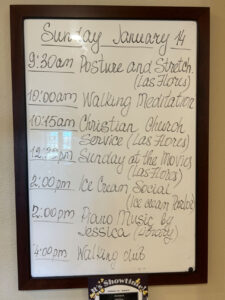 Sunday January 14
9:30am Posture and Stretch
(Las Flores)
10:00am Walking Meditation
10:15am Christian Church
Service (Las Flores)
12:30pm Sunday at the Movies
(Las Flores)
2:00pm Ice Cream Social
(Ice cream parlor)
2:00pm Piano Music by
Jessica (Library)
4:00pm Walking club
Showtime